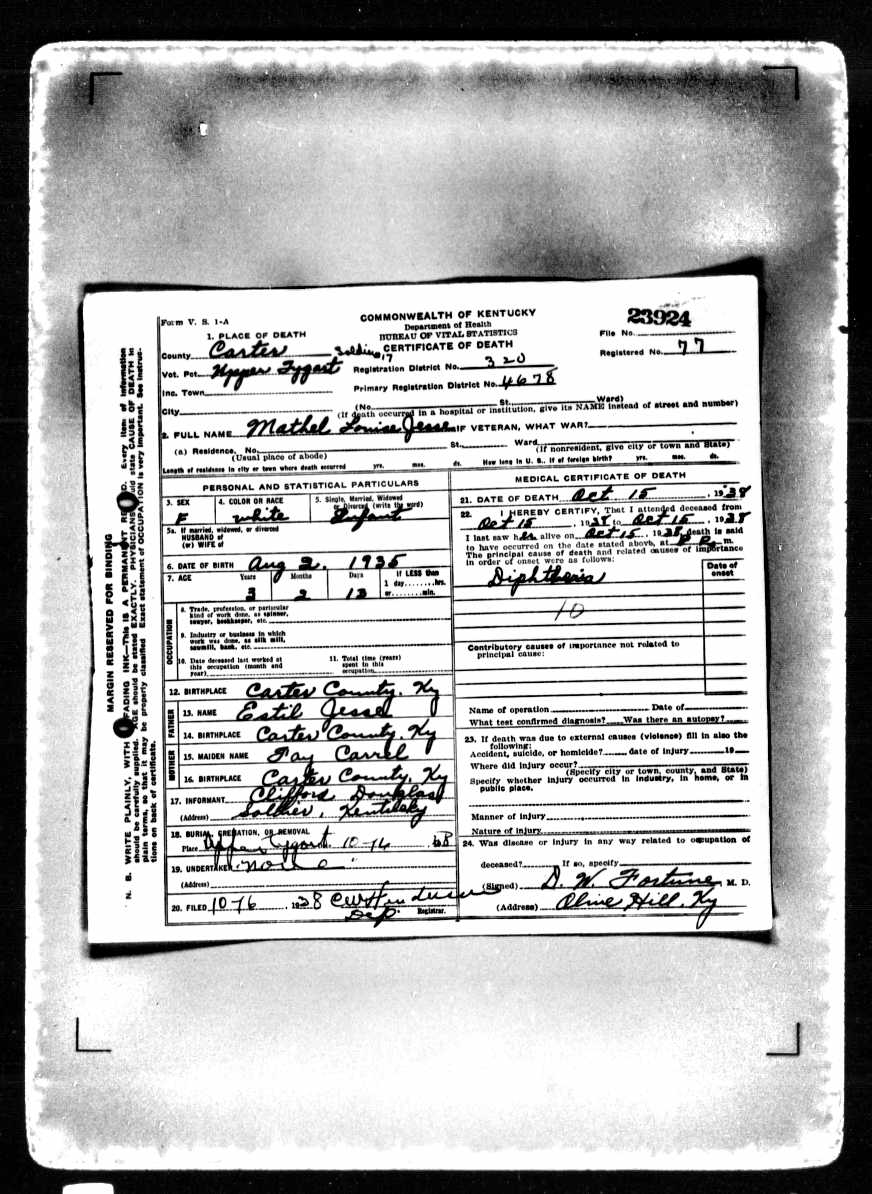 Form V. S. 1-A
COMMONWEALTH OF KENTUCKY
Department of Health
BUREAU OF VITAL STATISTICS
CERTIFICATE OF DEATH
23924
File No.
Registered No. 77
1. PLACE OF DEATH
County Carter
Vot. Pct. Upper Tygart
Inc. Town
City
Registration District No. 320
Primary Registration District No. 4678
(No. St. Ward)
(If death occurred in a hospital or institution, give its NAME instead of street and number)
2. FULL NAME Mathel Louise Jessel IF VETERAN, WHAT WAR?
(a) Residence. No. St., Ward
(Usual place of abode) (If nonresident, give city or town and State)
Length of residence in city or town where death occurred yrs. mos. ds. How long in U. S., if of foreign birth? yrs. mos. ds.
PERSONAL AND STATISTICAL PARTICULARS
3. SEX
F
4. COLOR OR RACE
white
5. Single, Married, Widowed
or Divorced (write the word)
Infant
5a. If married, widowed, or divorced
HUSBAND of
(or) WIFE of
6. DATE OF BIRTH Aug 2, 1935
7. AGE Years Months Days If LESS than
1 day, hrs.
or min.
3 2 13
OCCUPATION
8. Trade, profession, or particular
kind of work done, as spinner,
sawyer, bookkeeper, etc.
9. Industry or business in which
work was done, as silk mill,
sawmill, bank, etc.
10. Date deceased last worked at
this occupation (month and
year)
11. Total time (years)
spent in this
occupation
12. BIRTHPLACE Carter County, Ky
FATHER
13. NAME Estil Jessel
14. BIRTHPLACE Carter County, Ky
MOTHER
15. MAIDEN NAME Fay Carrel
16. BIRTHPLACE Carter County, Ky
17. INFORMANT Clifford Douglas
(Address) Soldier, Kentucky
18. BURIAL, CREATION, OR REMOVAL
Place Upper Tygart 10-16 38
19. UNDERTAKER None
(Address)
20. FILED 10-16, 1938 CW Henderson
Dep. Registrar.
MEDICAL CERTIFICATE OF DEATH
21. DATE OF DEATH Oct 15, 1938
22. I HEREBY CERTIFY, That I attended deceased from
Oct 15, 1938 to Oct 15, 1938
I last saw her alive on Oct 15, 1938, death is said
to have occurred on the date stated above, at m.
The principal cause of death and related causes of importance
in order of onset were as follows:
Date of
onset
Diphtheria
10
Contributory causes of importance not related to
principal cause:
Name of operation Date of
What test confirmed diagnosis? Was there an autopsy?
23. If death was due to external causes (violence) fill in also the
following:
Accident, suicide, or homicide? date of injury 19
Where did injury occur?
(Specify city or town, county, and State)
Specify whether injury occurred in industry, in home, or in
public place.
Manner of injury
Nature of injury
24. Was disease or injury in any way related to occupation of
deceased? If so, specify
(Signed) D. W. Fortune, M. D.
(Address) Olive Hill, Ky
MARGIN RESERVED FOR BINDING
N. B. WRITE PLAINLY, WITH UNFADING INK—This is a PERMANENT RECORD. Every item of information
should be carefully supplied. AGE should be stated EXACTLY. PHYSICIANS should state CAUSE OF DEATH in
plain terms, so that it may be properly classified. Exact statement of OCCUPATION is very important. See instruc-
tions on back of certificate.